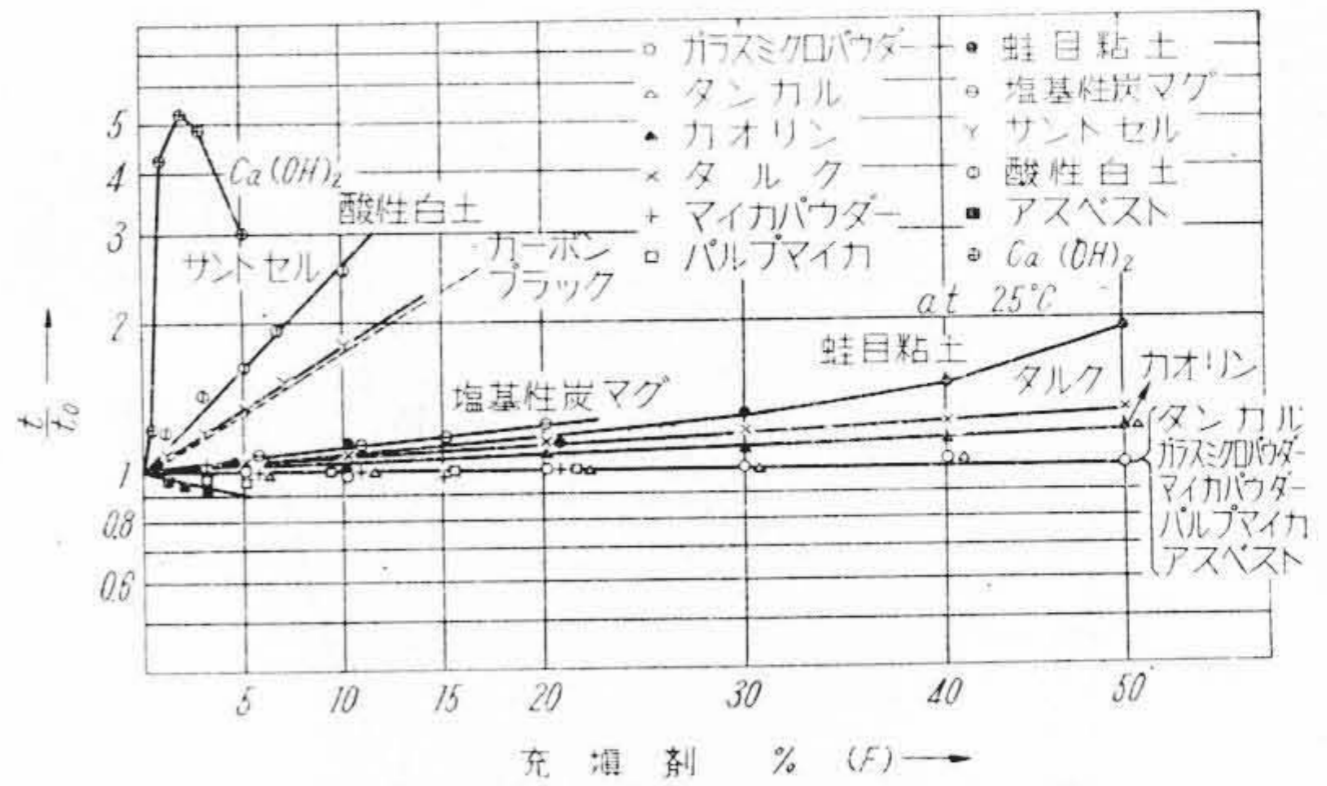 ガラスミクロパウダー
タンカル
カオリン
タルク
マイカパウダー
パルプマイカ
蛙目粘土
塩基性炭マグ
サントセル
酸性白土
アスベスト
Ca(OH)2
at 25°C
5
4
3
2
1
0.8
0.6
t/t0
Ca(OH)2
酸性白土
サントセル
カーボン
ブラック
塩基性炭マグ
蛙目粘土
タルク
カオリン
タンカル
ガラスミクロパウダー
マイカパウダー
パルプマイカ
アスベスト
5 10 15 20 30 40 50
充塡剤 % (F)